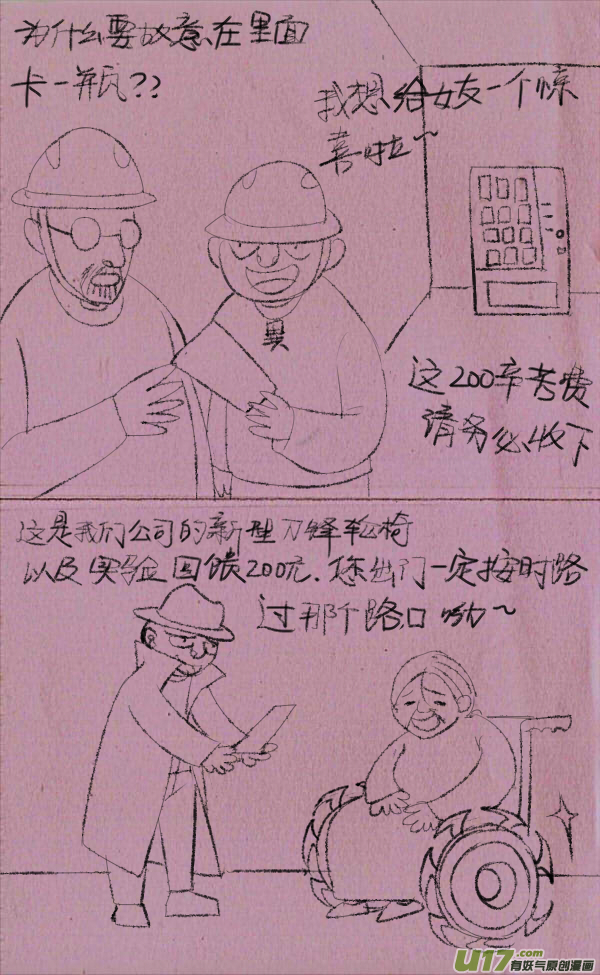 为什么要故意在里面
卡一瓶??
我想给女友一个惊
喜啦~
吴
这200辛苦费
请务必收下
这是我们公司的新型刀锋轮椅
以及实验回馈200元.您出门一定按时路
过那个路口呦~
U17.com
有妖气原创漫画